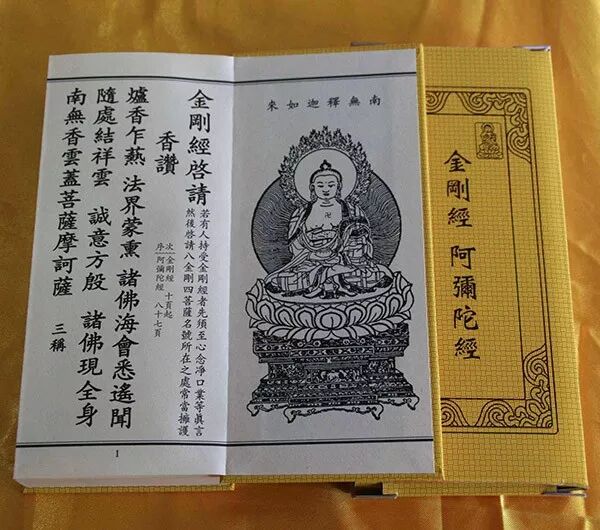 金剛經 阿彌陀經
南無釋迦如來
卍
金剛經啓請
若有人持受金剛經者先須至心念净口業等眞言
然後啓請八金剛四菩薩名號所在之處常當擁護
香讚
次 金剛經 十頁起
序 阿彌陀經 八十七頁
爐香乍熱 法界蒙熏 諸佛海會悉遙聞
隨處結祥雲 誠意方殷 諸佛現全身
南無香雲蓋菩薩摩訶薩 三稱
1